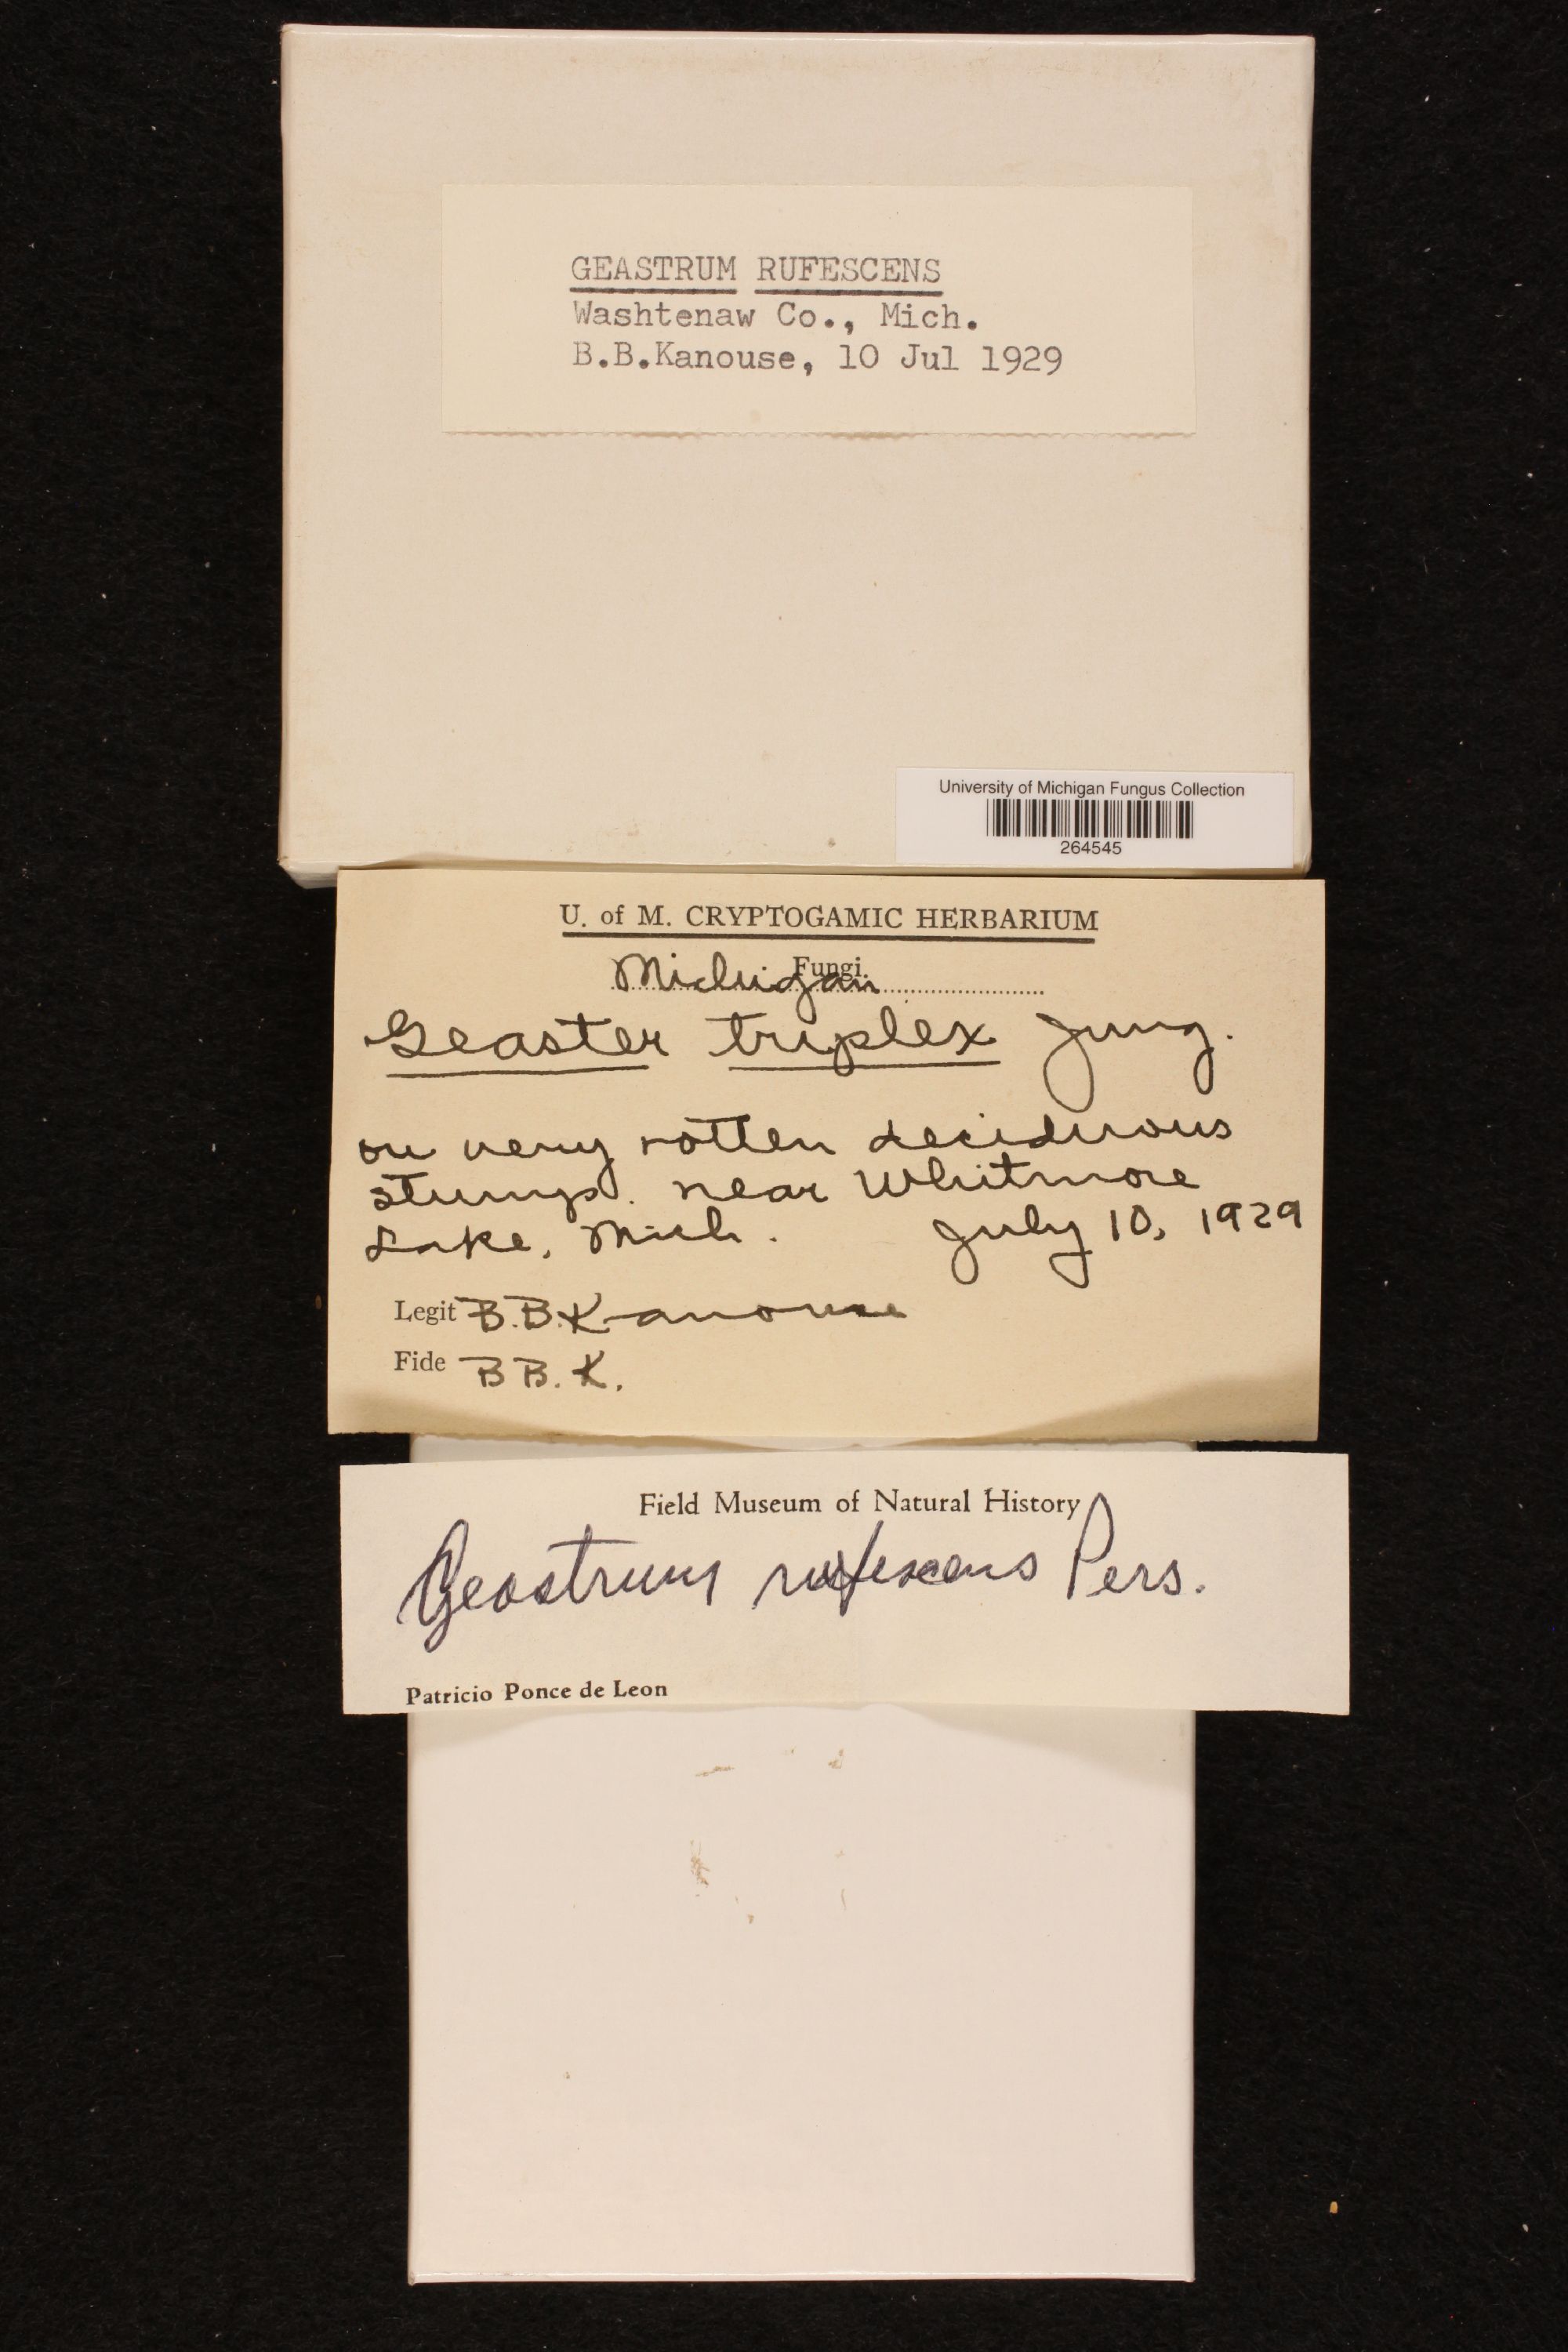 GEASTRUM RUFESCENS
Washtenaw Co., Mich.
B.B.Kanouse, 10 Jul 1929
University of Michigan Fungus Collection
264545
U. of M. CRYPTOGAMIC HERBARIUM
Fungi
Michigan
Geaster triplex Jung.
on very rotten deciduous
stumps. near Whitmore
Lake, Mich. July 10, 1929
Legit B.B.Kanouse
Fide B B. K.
Field Museum of Natural History
Geastrum rufescens Pers.
Patricio Ponce de Leon